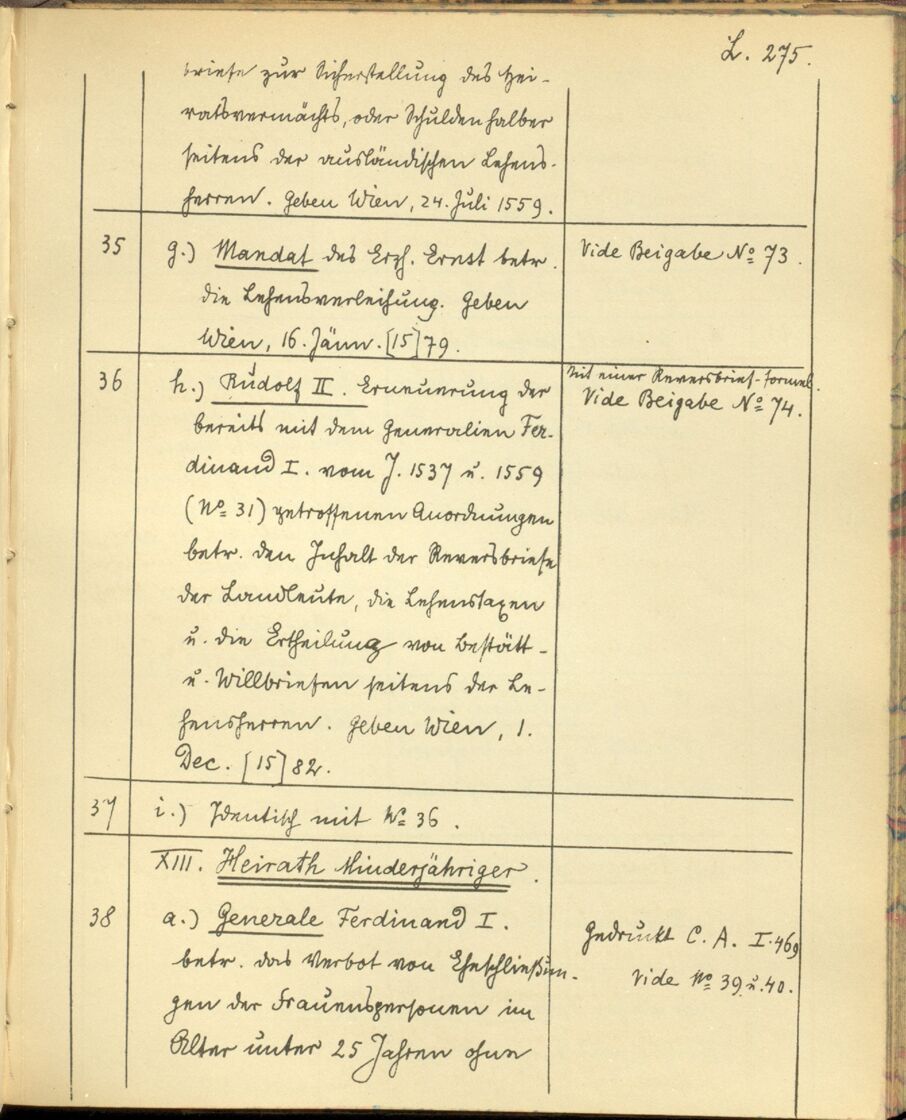 L. 275.
briefe zur Sicherstellung des Hei-
ratsvermächts, oder Schulden halber
seitens der ausländischen Lehens-
herren. Geben Wien, 24. Juli 1559.
35 g.) Mandat des Erzh. Ernst betr. Vide Beigabe No 73.
die Lehensverleihung. Geben
Wien, 16. Jänn. [15]79.
Mit einer Reversbrief-Formel.
36 h.) Rudolf II. Erneuerung der Vide Beigabe No 74.
bereits mit dem Generalien Fer-
dinand I. vom J. 1537 u. 1559
(No 31) getroffenen Anordnungen
betr. den Inhalt der Reversbriefe
der Landleute, die Lehenstaxen
u. die Ertheilung von Bestätt-
u. Willbriefen seitens der Le-
hensherren. Geben Wien, 1.
Dec. [15]82.
37 i.) Identisch mit No 36.
XIII. Heirath Minderjähriger.
38 a.) Generale Ferdinand I. Gedruckt C. A. I. 469
betr. das Verbot von Eheschließun- Vide No 39 u. 40.
gen der Frauenspersonen im
Alter unter 25 Jahren ohne